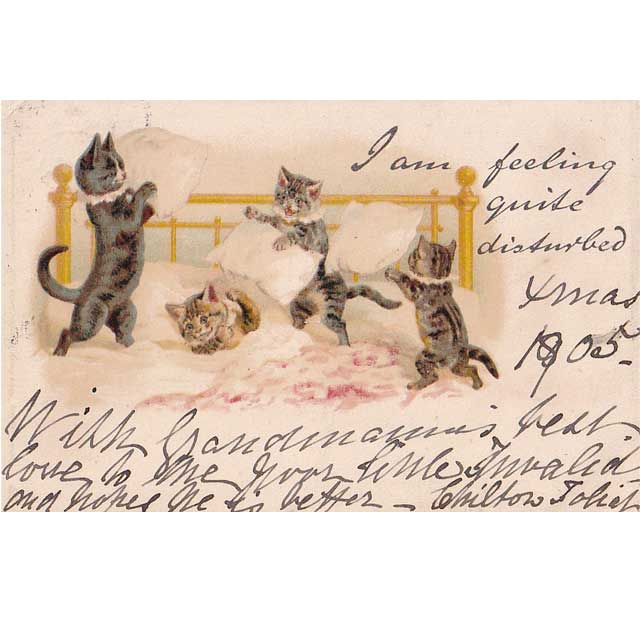 I am feeling
quite
disturbed
Xmas
1905
With Grandmama's best
love to the poor little Invalid
and hopes he is better - Chilton Foliat